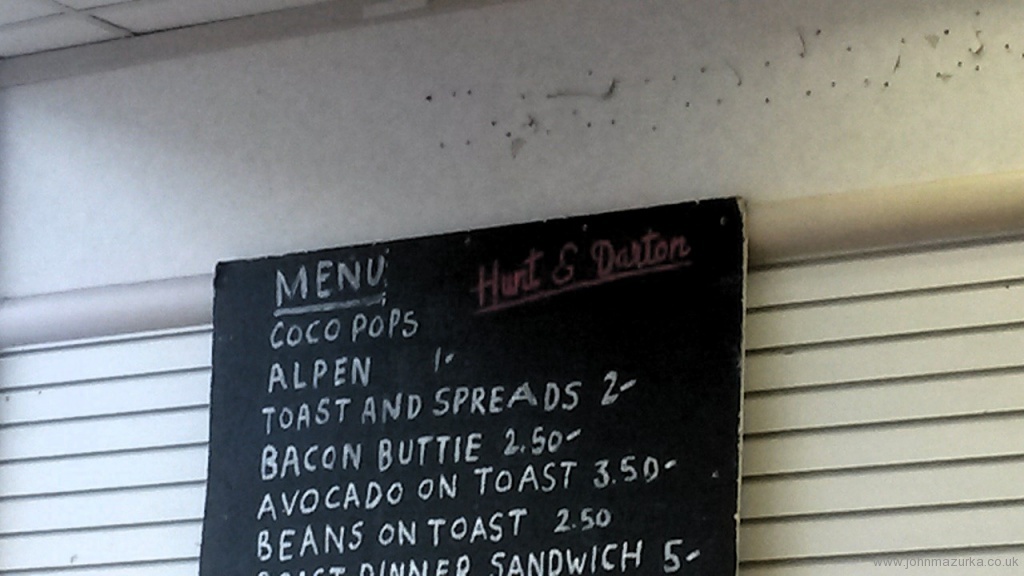 MENU
Hunt & Darton
COCO POPS
ALPEN 1-
TOAST AND SPREADS 2-
BACON BUTTIE 2.50-
AVOCADO ON TOAST 3.50-
BEANS ON TOAST 2.50
ROAST DINNER SANDWICH 5-
www.johnmazurka.co.uk